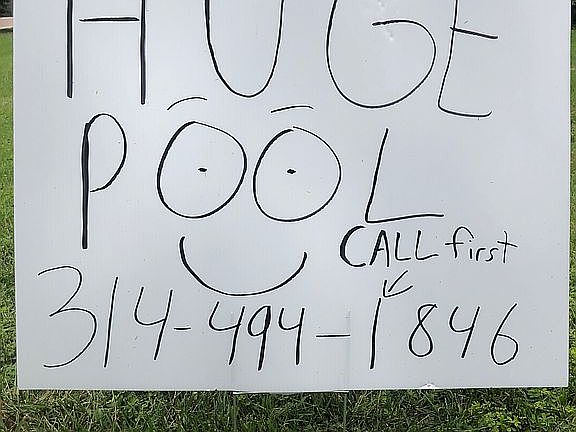 HUGE
POOL
CALL first
314-494-1846